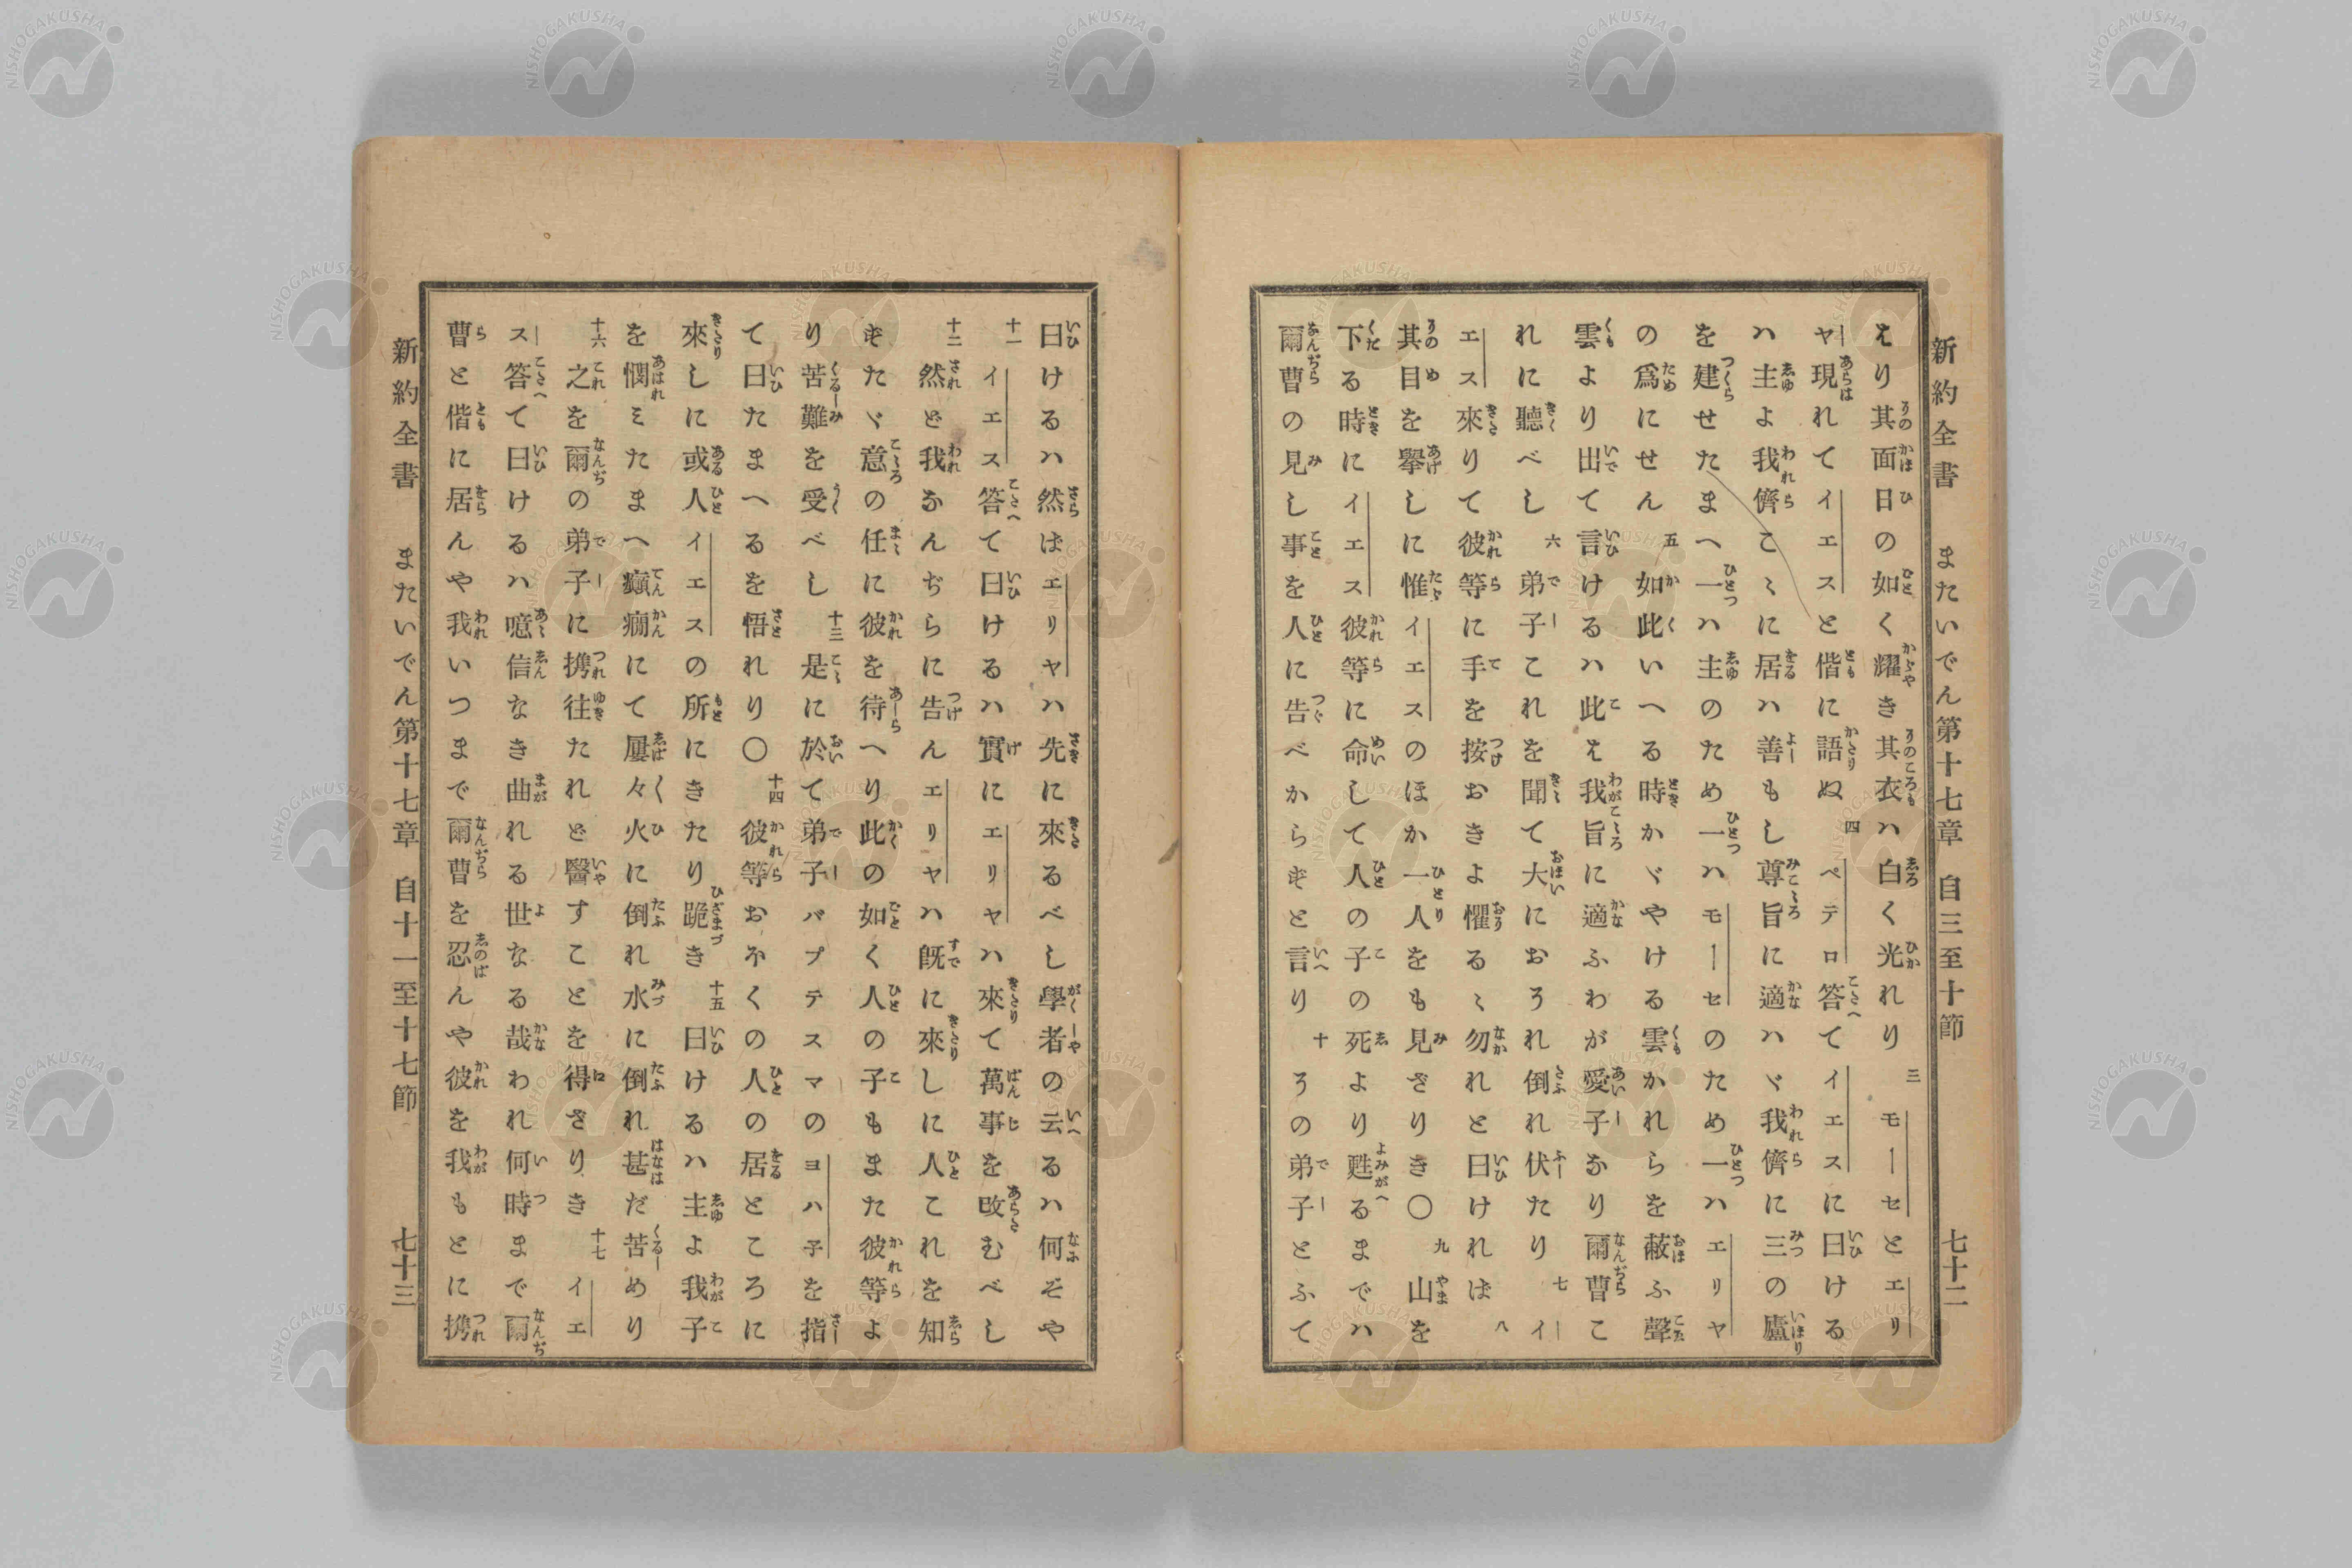 新約全書 またいでん第十七章 自三至十節 七十二
えり其面日の如く耀き其衣ハ白く光れり 三 モーセとエリ
ヤ現れてイエスと偕に語りぬ 四 ペテロ答てイエスに曰ける
ハ主よ我儕こゝに居ハ善もし尊旨に適ハヾ我儕に三の廬
を建せたまへ一ハ主のため一ハモーセのため一ハエリヤ
の爲にせん 五 如此いへる時かヾやける雲かれらを蔽ふ聲
雲より出て言けるハ此ハ我旨に適ふわが愛子なり爾曹こ
れに聽べし 六 弟子これを聞て大におそれ倒れ伏たり 七 イ
エス來りて彼等に手を按おきよ懼るゝ勿れと曰ければ 八
其目を擧しに惟イエスのほか一人をも見ざりき〇 九 山を
下る時にイエス彼等に命して人の子の死より甦るまでハ
爾曹の見し事を人に告べからずと言り 十 その弟子とふて
曰けるハ然ばエリヤハ先に來るべし學者の云るハ何ぞや
十一 イエス答て曰けるハ實にエリヤハ來て萬事を改むべし
十二 然ど我なんぢらに告んエリヤハ既に來しに人これを知
ずたヾ意の任に彼を待へり此の如く人の子もまた彼等よ
り苦難を受べし 十三 是に於て弟子バプテスマのヨハ子を指
て曰たまへるを悟れり〇 十四 彼等おほくの人の居ところに
來しに或人イエスの所にきたり跪き 十五 曰けるハ主よ我子
を憫ミたまへ癲癇にて屢々火に倒れ水に倒れ甚だ苦めり
十六 之を爾の弟子に携往たれど醫すことを得ざりき 十七 イエ
ス答て曰けるハ噫信なき曲れる世なる哉われ何時まで爾
曹と偕に居んや我いつまで爾曹を忍んや彼を我もとに携
新約全書 またいでん第十七章 自十一至十七節 七十三
NISHOGAKUSHA